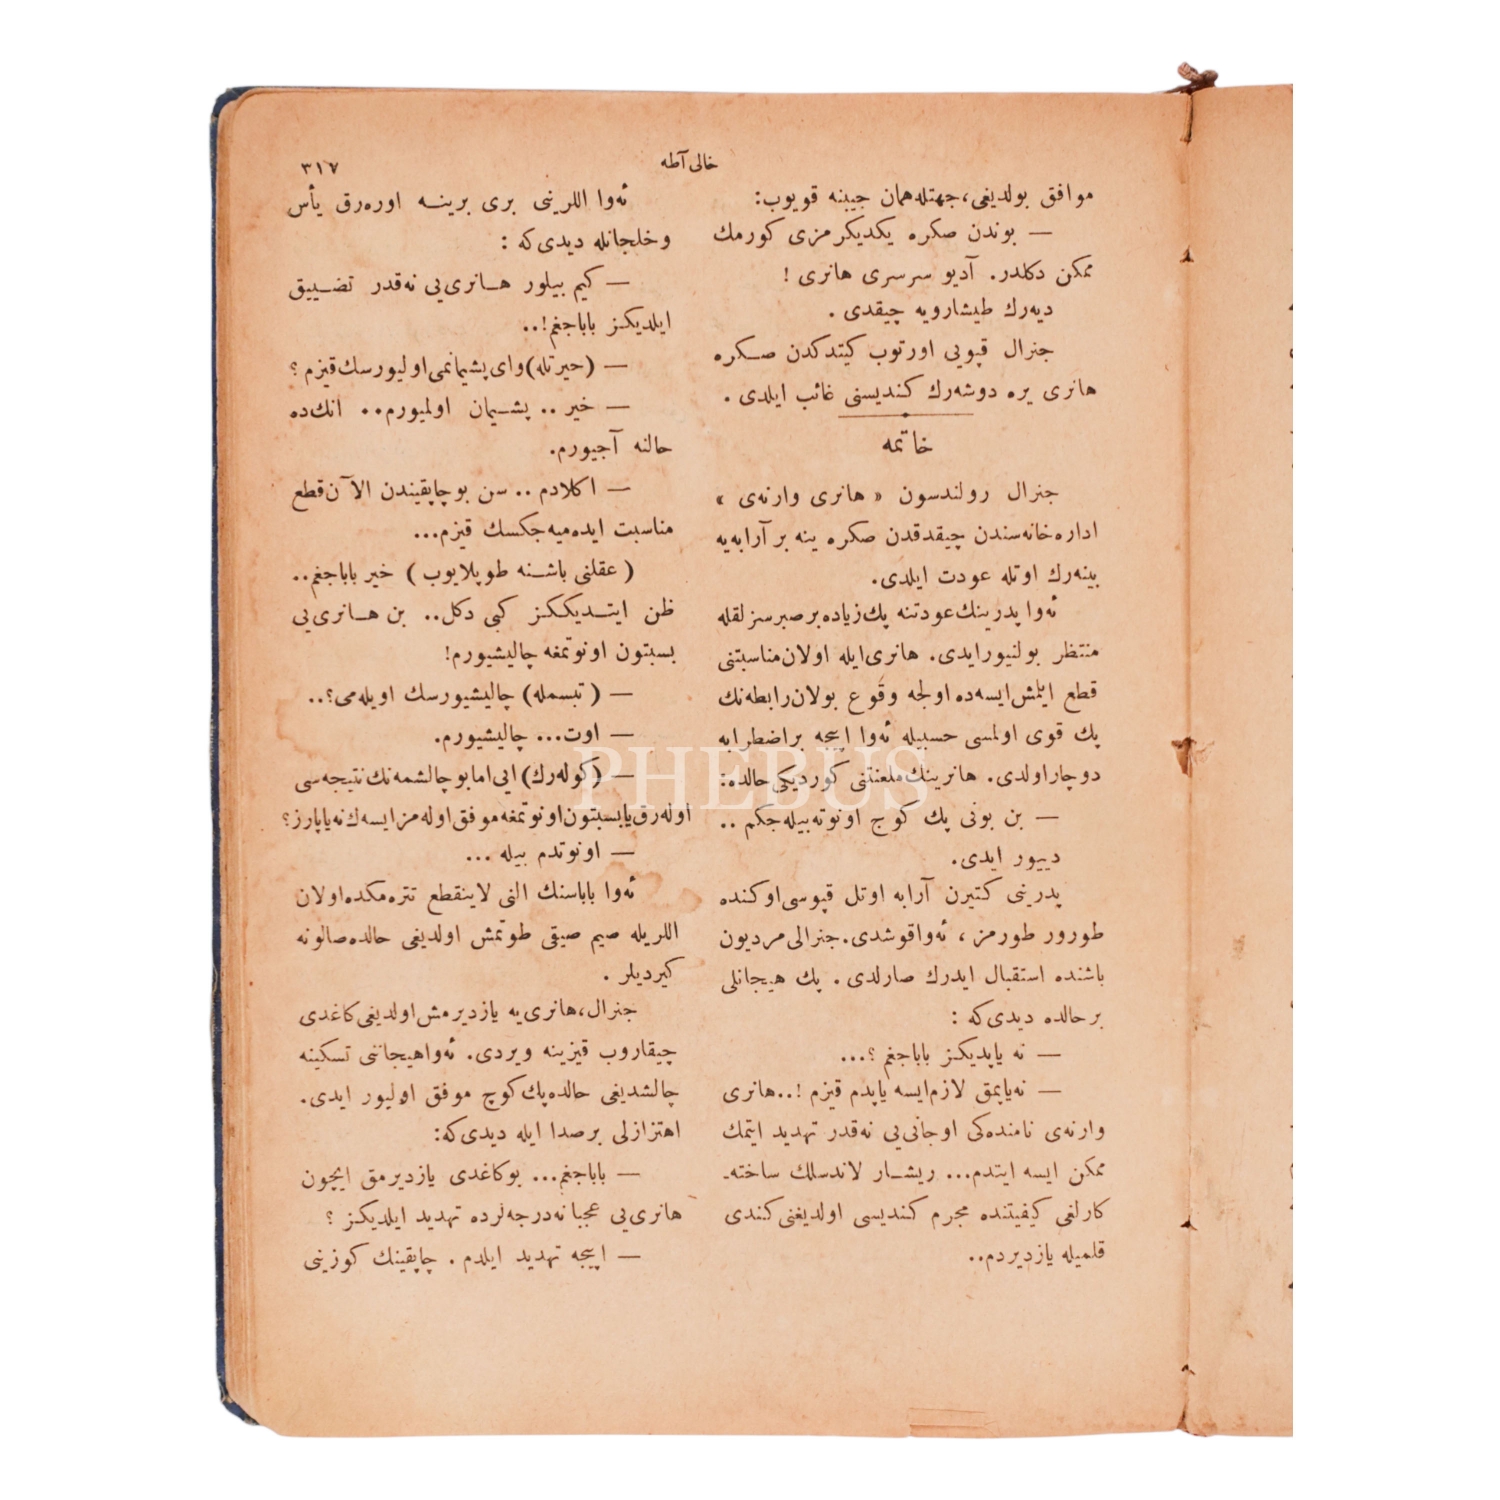 خالی آطه
٣١٧
موافق بولدیغی، جهتله همان جیبنه قویوب:
— بوندن صکره یکدیکرمزی کورمك
ممکن دکلدر. آدیو سرسری هانری !
دیه‌رك طیشارویه چیقدی .
جنرال قپویی اورتوب کیتدکدن صکره
هانری یره دوشه‌رك کندیسنی غائب ایلدی .
خاتمه
جنرال رولندسون « هانری وارنه‌ی »
اداره‌خانه‌سندن چیقدقدن صکره ینه بر آرابه‌یه
بینه‌رك اوتله عودت ایلدی.
ئه‌وا پدرینك عودتنه پك زیاده بر صبرسزلقله
منتظر بولنیور ایدی. هانری ایله اولان مناسبتنی
قطع ایلمش ایسه‌ده اولجه وقوع بولان رابطه‌نك
پك قوی اولمسی حسبیله ئه‌وا اپیجه بر اضطرابه
دوچار اولدی. هانرینك ملعنتنی کوردیکی حالده:
— بن بونی پك کوج اونوته‌بیله‌جکم ..
دییور ایدی.
پدرینی کتیرن آرابه اوتل قپوسی اوکنده
طورور طورمز ، ئه‌وا قوشدی. جنرالی مردیون
باشنده استقبال ایدرك صارلدی . پك هیجانلی
بر حالده دیدی که :
— نه یاپدیکز باباجغم ؟...
— نه یاپمق لازم ایسه یاپدم قیزم !.. هانری
وارنه‌ی نامنده‌کی او جانی‌یی نه‌قدر تهدید ایتمك
ممکن ایسه ایتدم... ریشار لاندسلك ساخته‌-
کارلغی کیفیتنده مجرم کندیسی اولدیغنی کندی
قلمیله یازدیردم..
ئه‌وا اللرینی بری برینه اوره‌رق یأس
وخلجانله دیدی که :
— کیم بیلور هانری‌یی نه‌قدر تضییق
ایلدیکز باباجغم!..
— (حیرتله) وای پشیمانمی اولیورسك قیزم ؟
— خیر .. پشیمان اولمیورم.. انك‌ده
حالنه آجیورم.
— اکلادم .. سن بو چاپقیندن الآن قطع
مناسبت ایده‌میه‌جکسك قیزم...
( عقلنی باشنه طوپلایوب ) خیر باباجغم..
ظن ایتدیککز کبی دکل.. بن هانری‌یی
بسبتون اونوتمغه چالیشیورم!
— ( تبسمله) چالیشیورسك اویله‌می؟..
— اوت... چالیشیورم.
— (کوله‌رك) ایی اما بو چالشمه‌نك نتیجه‌سی
اوله‌رق یا بسبتون اونوتمغه موفق اوله‌مز ایسه‌ك نه یاپارز؟
— اونوتدم بیله ...
ئه‌وا باباسنك النی لاینقطع تتره‌مکده اولان
اللریله صیم صیقی طوتمش اولدیغی حالده صالونه
کیردیلر .
جنرال، هانری‌یه یازدیرمش اولدیغی کاغدی
چیقاروب قیزینه ویردی. ئه‌وا هیجاننی تسکینه
چالشدیغی حالده پك کوج موفق اولیور ایدی.
اهتزازلی بر صدا ایله دیدی که:
— باباجغم... بو کاغدی یازدیرمق ایچون
هانری‌یی عجبا نه درجه‌لرده تهدید ایلدیکز ؟
— اپیجه تهدید ایلدم . چاپقینك کوزینی
PHEBUS